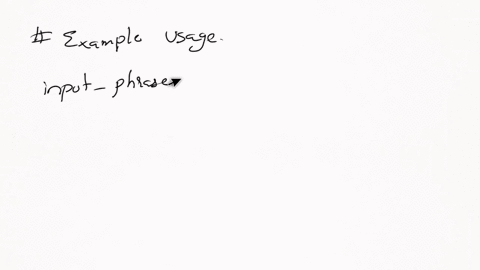 # Example usage.
input_phrase